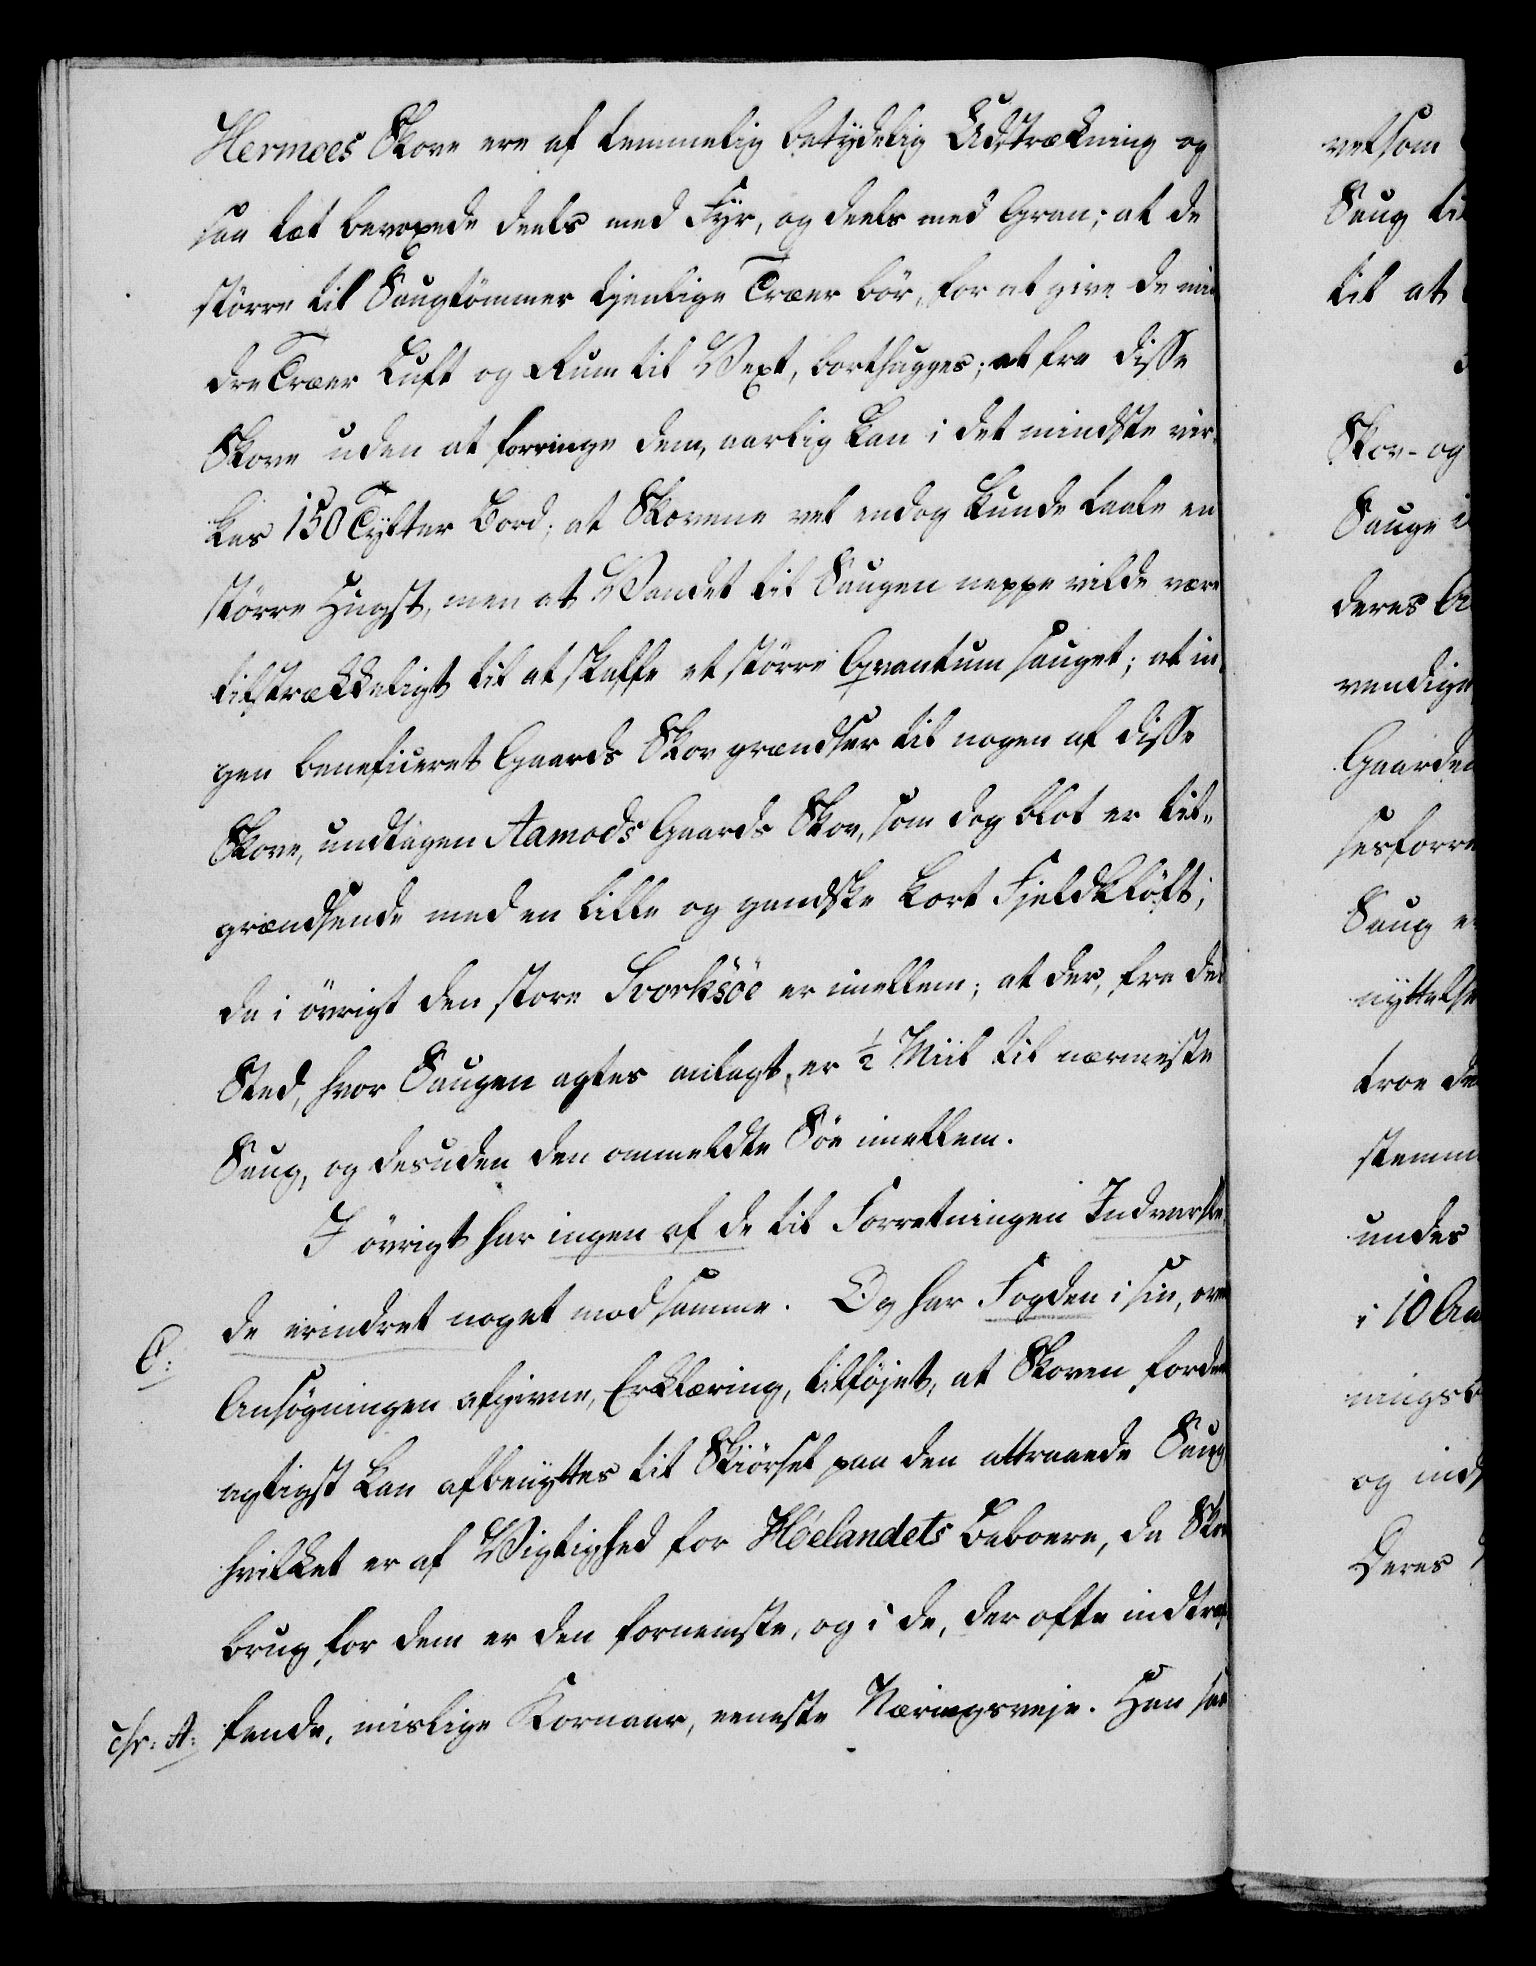 Hermoes Skove ere af temmelig betydelig Udstrækning og
saa tæt bevoxede deels med Fyr, og deels med Gran; at de
större til Saugtömmer tjenlige Træer bör, for at give de min
dre Træer Luft og Rum til Vext, borthugges; at fra disse
Skove uden at forringe dem, aarlig kan i det mindste vir-
kes 150 Tylfter Bord; at Skovene vel endog kunde taale en
större Hugst, men at Vandet til Saugen neppe vilde være
tilstrækkeligt til at skaffe et större Qvantum sauget; at in-
gen beneficeret Gaards Skov grændser til nogen af disse
Skove, undtagen Aamods Gaards Skov, som dog blot er til-
grændsende med en lille og gandske kort Fjeldklöft;
da i övrigt den store Svorksöe er imellem; at der, fra det
Sted, hvor Saugen agtes anlagt, er ½ Miil til nærmeste
Saug, og desuden den ommeldte Söe imellem.
I övrigt har ingen af de til Forretningen Indvarsle-
de erindret noget mod samme. Og har Fogden i sin, over
C:
Ansögningen afgivne, Erklæring, tilföjet, at Skoven fordeel
agtigst kan afbenyttes til Skiörsel paa den attraaede Saug
hvilket er af Vigtighed for Höelandets Beboere, da Skov
brug for dem er den fornemste, og i de, der ofte indtræf
fende, mislige Kornaar, eeneste Næringsveje. Han har
cfr: A:
velsom
Saug til
til at
Skov- og
Sauge i
deres
vendige
Gaarden
sesforre
Saug e
nyttelse
troe de
stemm
undes
i 10 Aa
ningsb
og ind
Deres